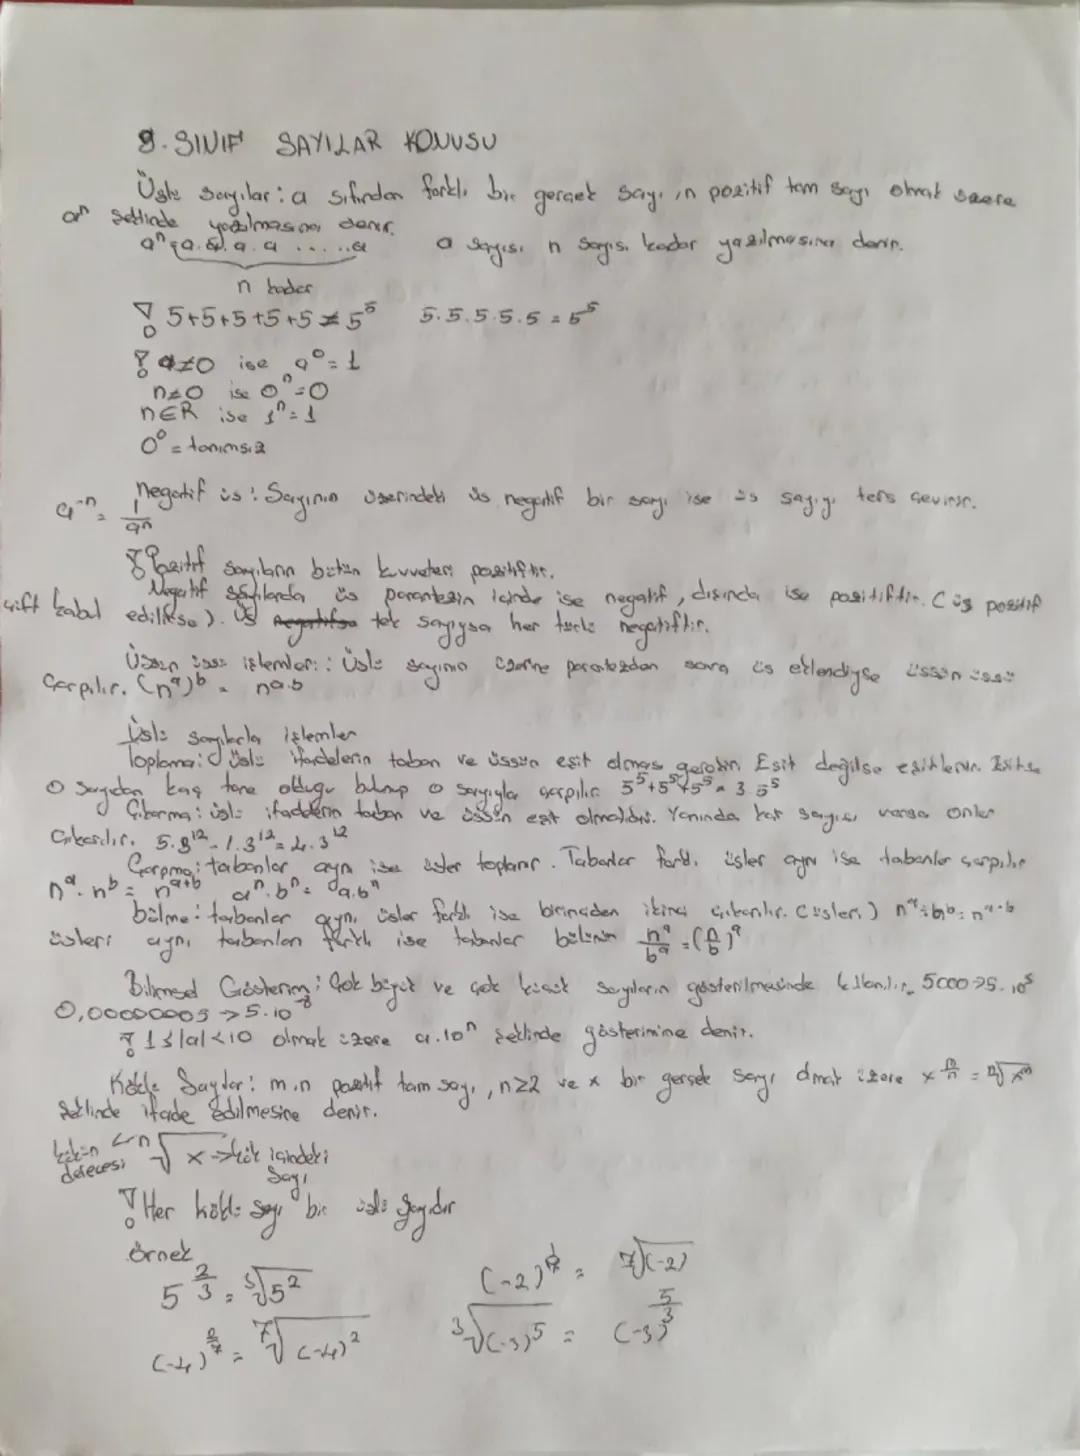 9. SINIF SAYILAR KONUSU
Üslü Sayılar: a sıfırdan farklı bir gerçek sayı, n pozitif tam sayı olmak üzere
aⁿ şeklinde yazılmasına denir.
aⁿ = a.a.a.a.....a a sayısı n sayısı kadar yazılmasına denir.
n kadar
! 5+5+5+5+5 ≠ 5⁵ 5.5.5.5.5 = 5⁵
! a≠0 ise a⁰ = 1
n≠0 ise 0ⁿ = 0
n∈R ise 1ⁿ = 1
0⁰ = tanımsız
Negatif üs: Sayının üzerindeki üs negatif bir sayı ise üs sayıyı ters çevirir.
a⁻ⁿ = 1/aⁿ
! Pozitif sayıların bütün kuvvetleri pozitiftir.
Negatif sayılarda üs parantezin içinde ise negatif, dışında ise pozitiftir. (üs pozitif
çift kabul edilirse). Üs tek sayıysa her türlü negatiftir.
Üssün üssü işlemleri: Üslü sayının üzerine parantezden sonra üs eklendiyse üssün üssü
çarpılır. (nᵃ)ᵇ = nᵃ·ᵇ
Üslü sayılarla işlemler
Toplama: Üslü ifadelerin taban ve üssün eşit olması gerekir. Eşit değilse eşitlenir.
O sayıdan kaç tane olduğu bulunup o sayıyla çarpılır 5⁵+5⁵+5⁵ = 3.5⁵
Çıkarma: üslü ifadelerin taban ve üssün eşit olmalıdır. Yanında kat sayısı varsa onlar
çıkarılır. 5.3¹² - 1.3¹² = 4.3¹²
Çarpma: tabanlar aynı ise üsler toplanır. Tabanlar farklı üsler aynı ise tabanlar çarpılır
nᵃ.nᵇ = nᵃ⁺ᵇ aⁿ.bⁿ = a.bⁿ
bölme: tabanlar aynı üsler farklı ise birinciden ikinci çıkarılır. (üsler) nᵃ÷nᵇ = nᵃ⁻ᵇ
üsleri aynı tabanları farklı ise tabanlar bölünür nᵃ/bᵃ = (n/b)ᵃ
Bilimsel Gösterim: Çok büyük ve çok küçük sayıların gösterilmesinde kullanılır. 5000→5.10³
0,00000005→5.10⁻⁸
! 1≤|a|<10 olmak üzere a.10ⁿ şeklinde gösterimine denir.
Köklü Sayılar: m,n pozitif tam sayı, n≥2 ve x bir gerçek sayı olmak üzere x^(m/n) = ⁿ√xᵐ
şeklinde ifade edilmesine denir.
kökün derecesi ← ⁿ√x → kök içindeki sayı
! Her köklü sayı bir üslü sayıdır
Örnek
5^(2/3) = ³√5² (-2)^(1/7) = ⁷√(-2)
(-4)^(2/7) = ⁷√(-4)² ³√(-3)⁵ = (-3)^(5/3)